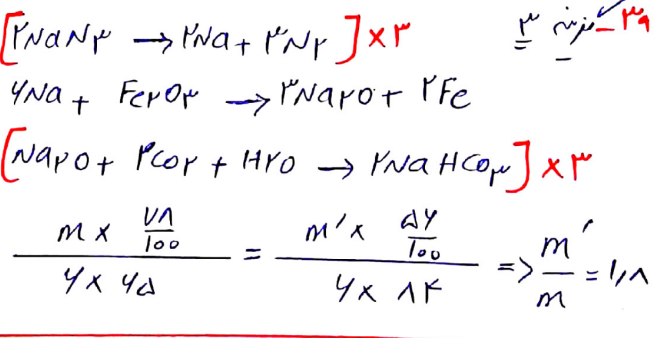 ۳۹_ گزینه ۳
[۲NaN۳ → ۲Na + ۳N۲] × ۳
۶Na + Fe۲O۳ → ۳Na۲O + ۲Fe
[Na۲O + ۲CO۲ + H۲O → ۲NaHCO۳] × ۳
m × ۷۸/۱۰۰ / ۶ × ۶۵ = m′ × ۵۶/۱۰۰ / ۶ × ۸۴ => m′/m = ۱,۸